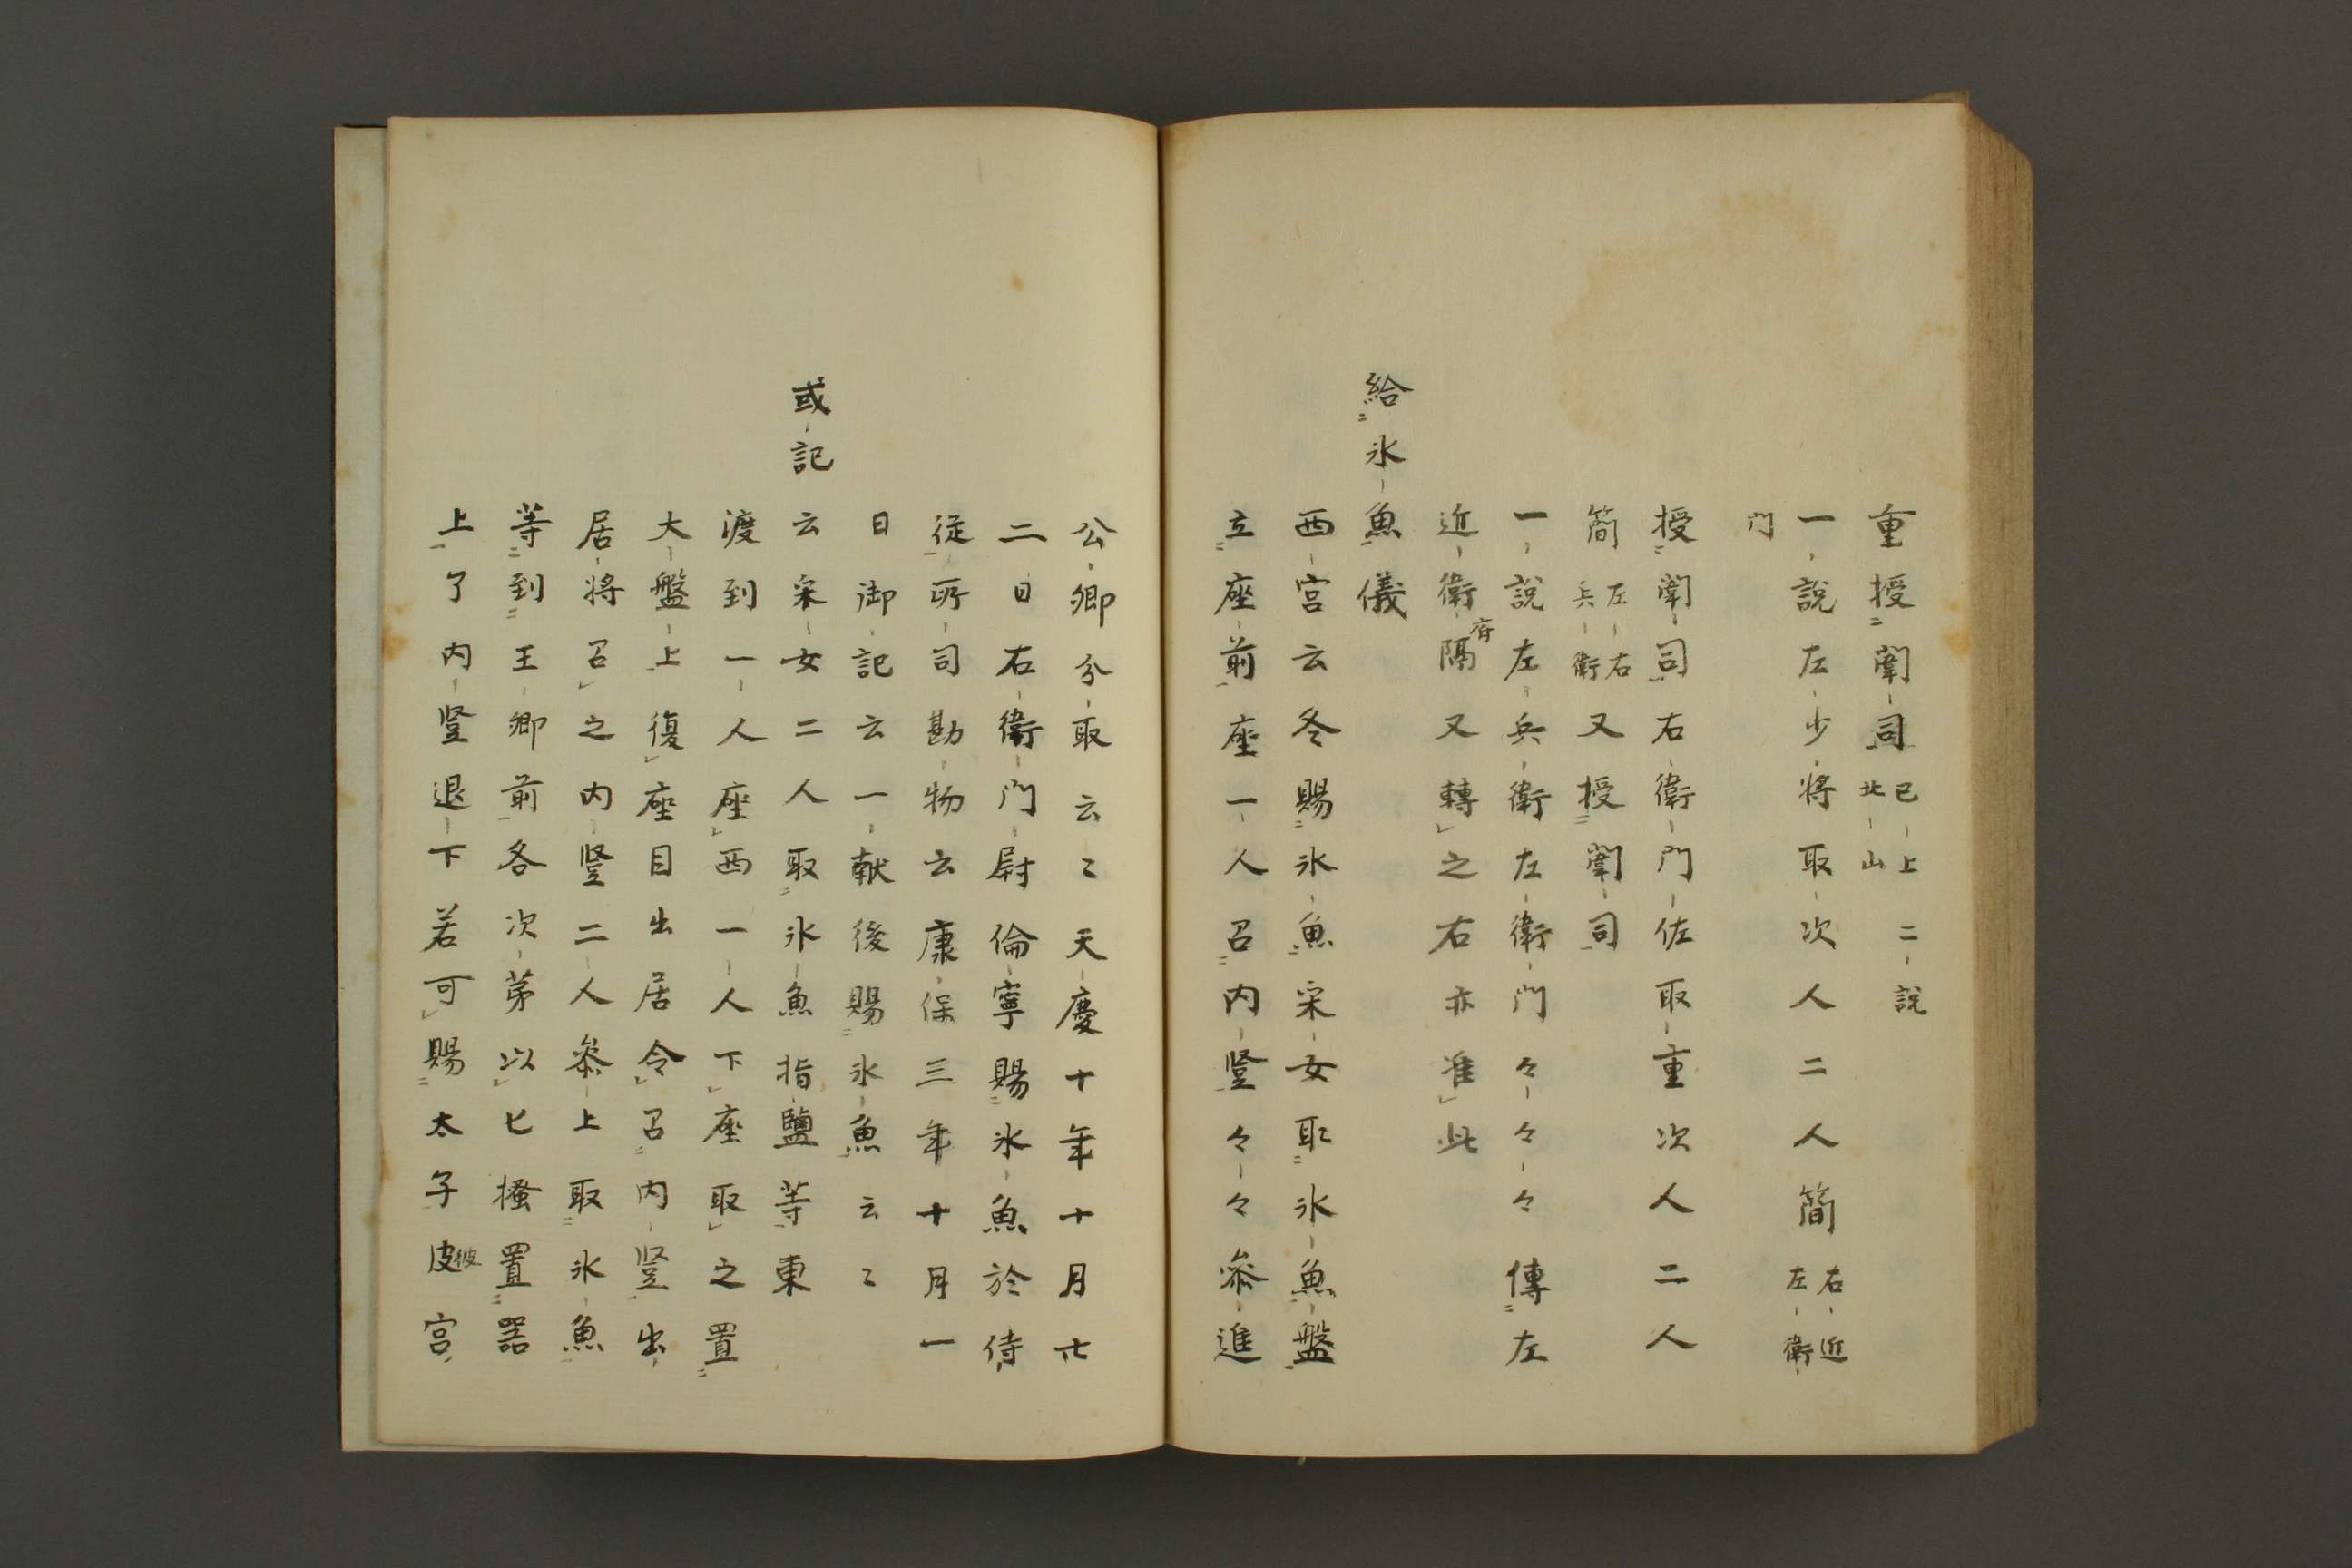 重授闈司已上二説北山
一説左少将取次人二人簡右近左衛
門
授闈司右衛門佐取重次人二人
簡左右兵衛又授闈司
一説左兵衛左衛門々々々傳左
近衛隔府又轉之右亦准此
給氷魚儀
西宮云冬賜氷魚采女取氷魚盤
立座前座一人召内豎々々参進
公卿分取云〻天慶十年十月廿
二日右衛門尉倫寧賜氷魚於侍
従所司勘物云康保三年十月一
日御記云一献後賜氷魚云〻
或記云采女二人取氷魚指鹽等東
渡到一人座西一人下座取之置
大盤上復座目出居令召内豎出
居将召之内豎二人参上取氷魚
等到王卿前各次第以匕掻置器
上了内豎退下若可賜太子皮彼宮